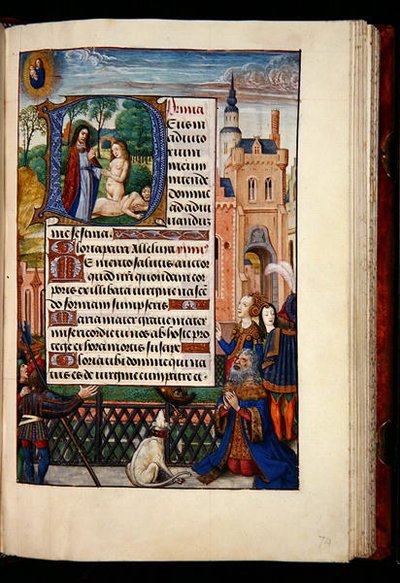 Prima
Deus in
adiuto
rium
meum
intende
domine
ad adiu
uandum
me festina.
Gloria patri Alleluia
Memento salutis auctor
quod nr̃i quondam cor
poris ex illibata virgine nascẽ
do formam sumpseris
Maria mater gratie mater
misericordie tu nos ab hoste pro
tege et hora mortis suscipe
Gloria tibi domine qui na
tus es de virgine cum patre et
74